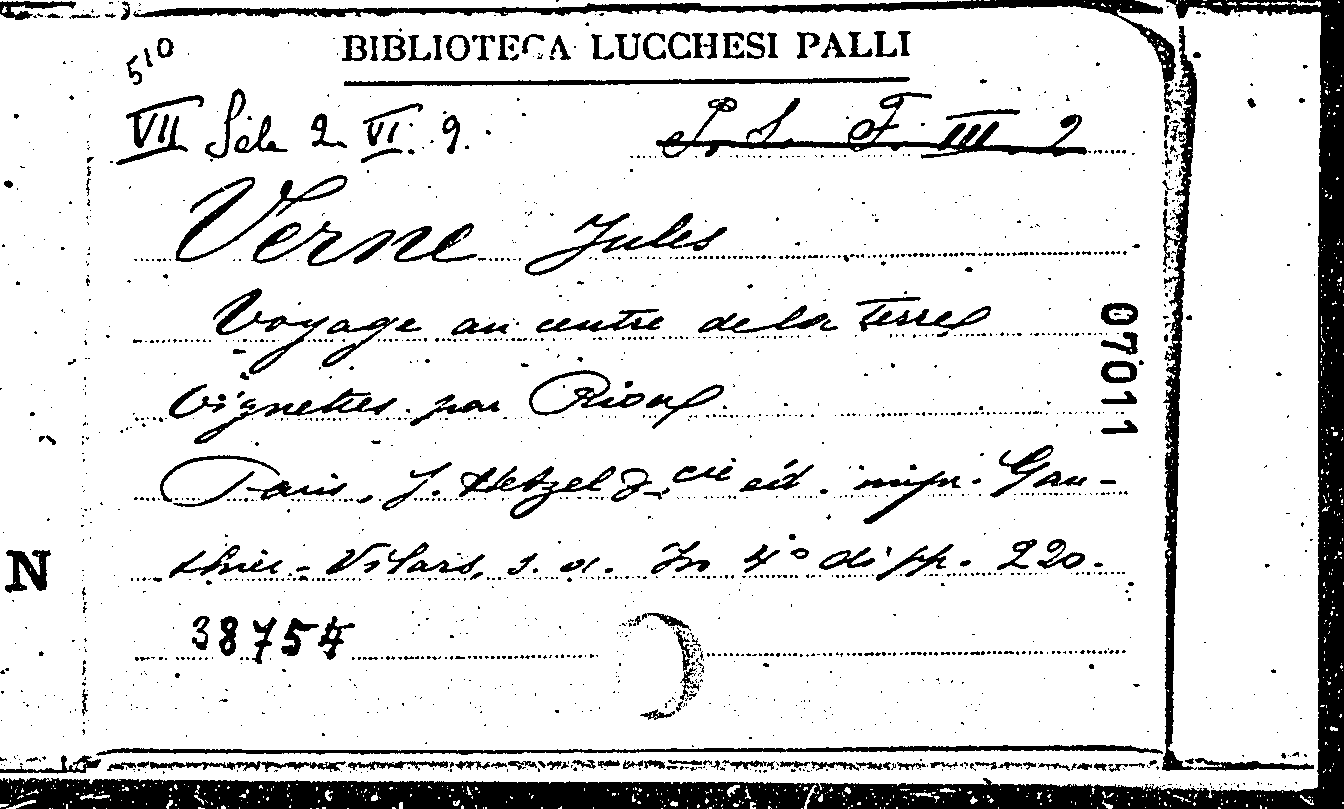 510
BIBLIOTECA LUCCHESI PALLI
VII Sala 2 VI. 9.
P. S. F. III 2
Verne Jules
Voyage au centre de la Terre
Vignettes par Riou
Paris, J. Hetzel & cie éd. impr. Gau-
thier-Vilars, s. a. In 4° di pp. 220.
38754
07011
N